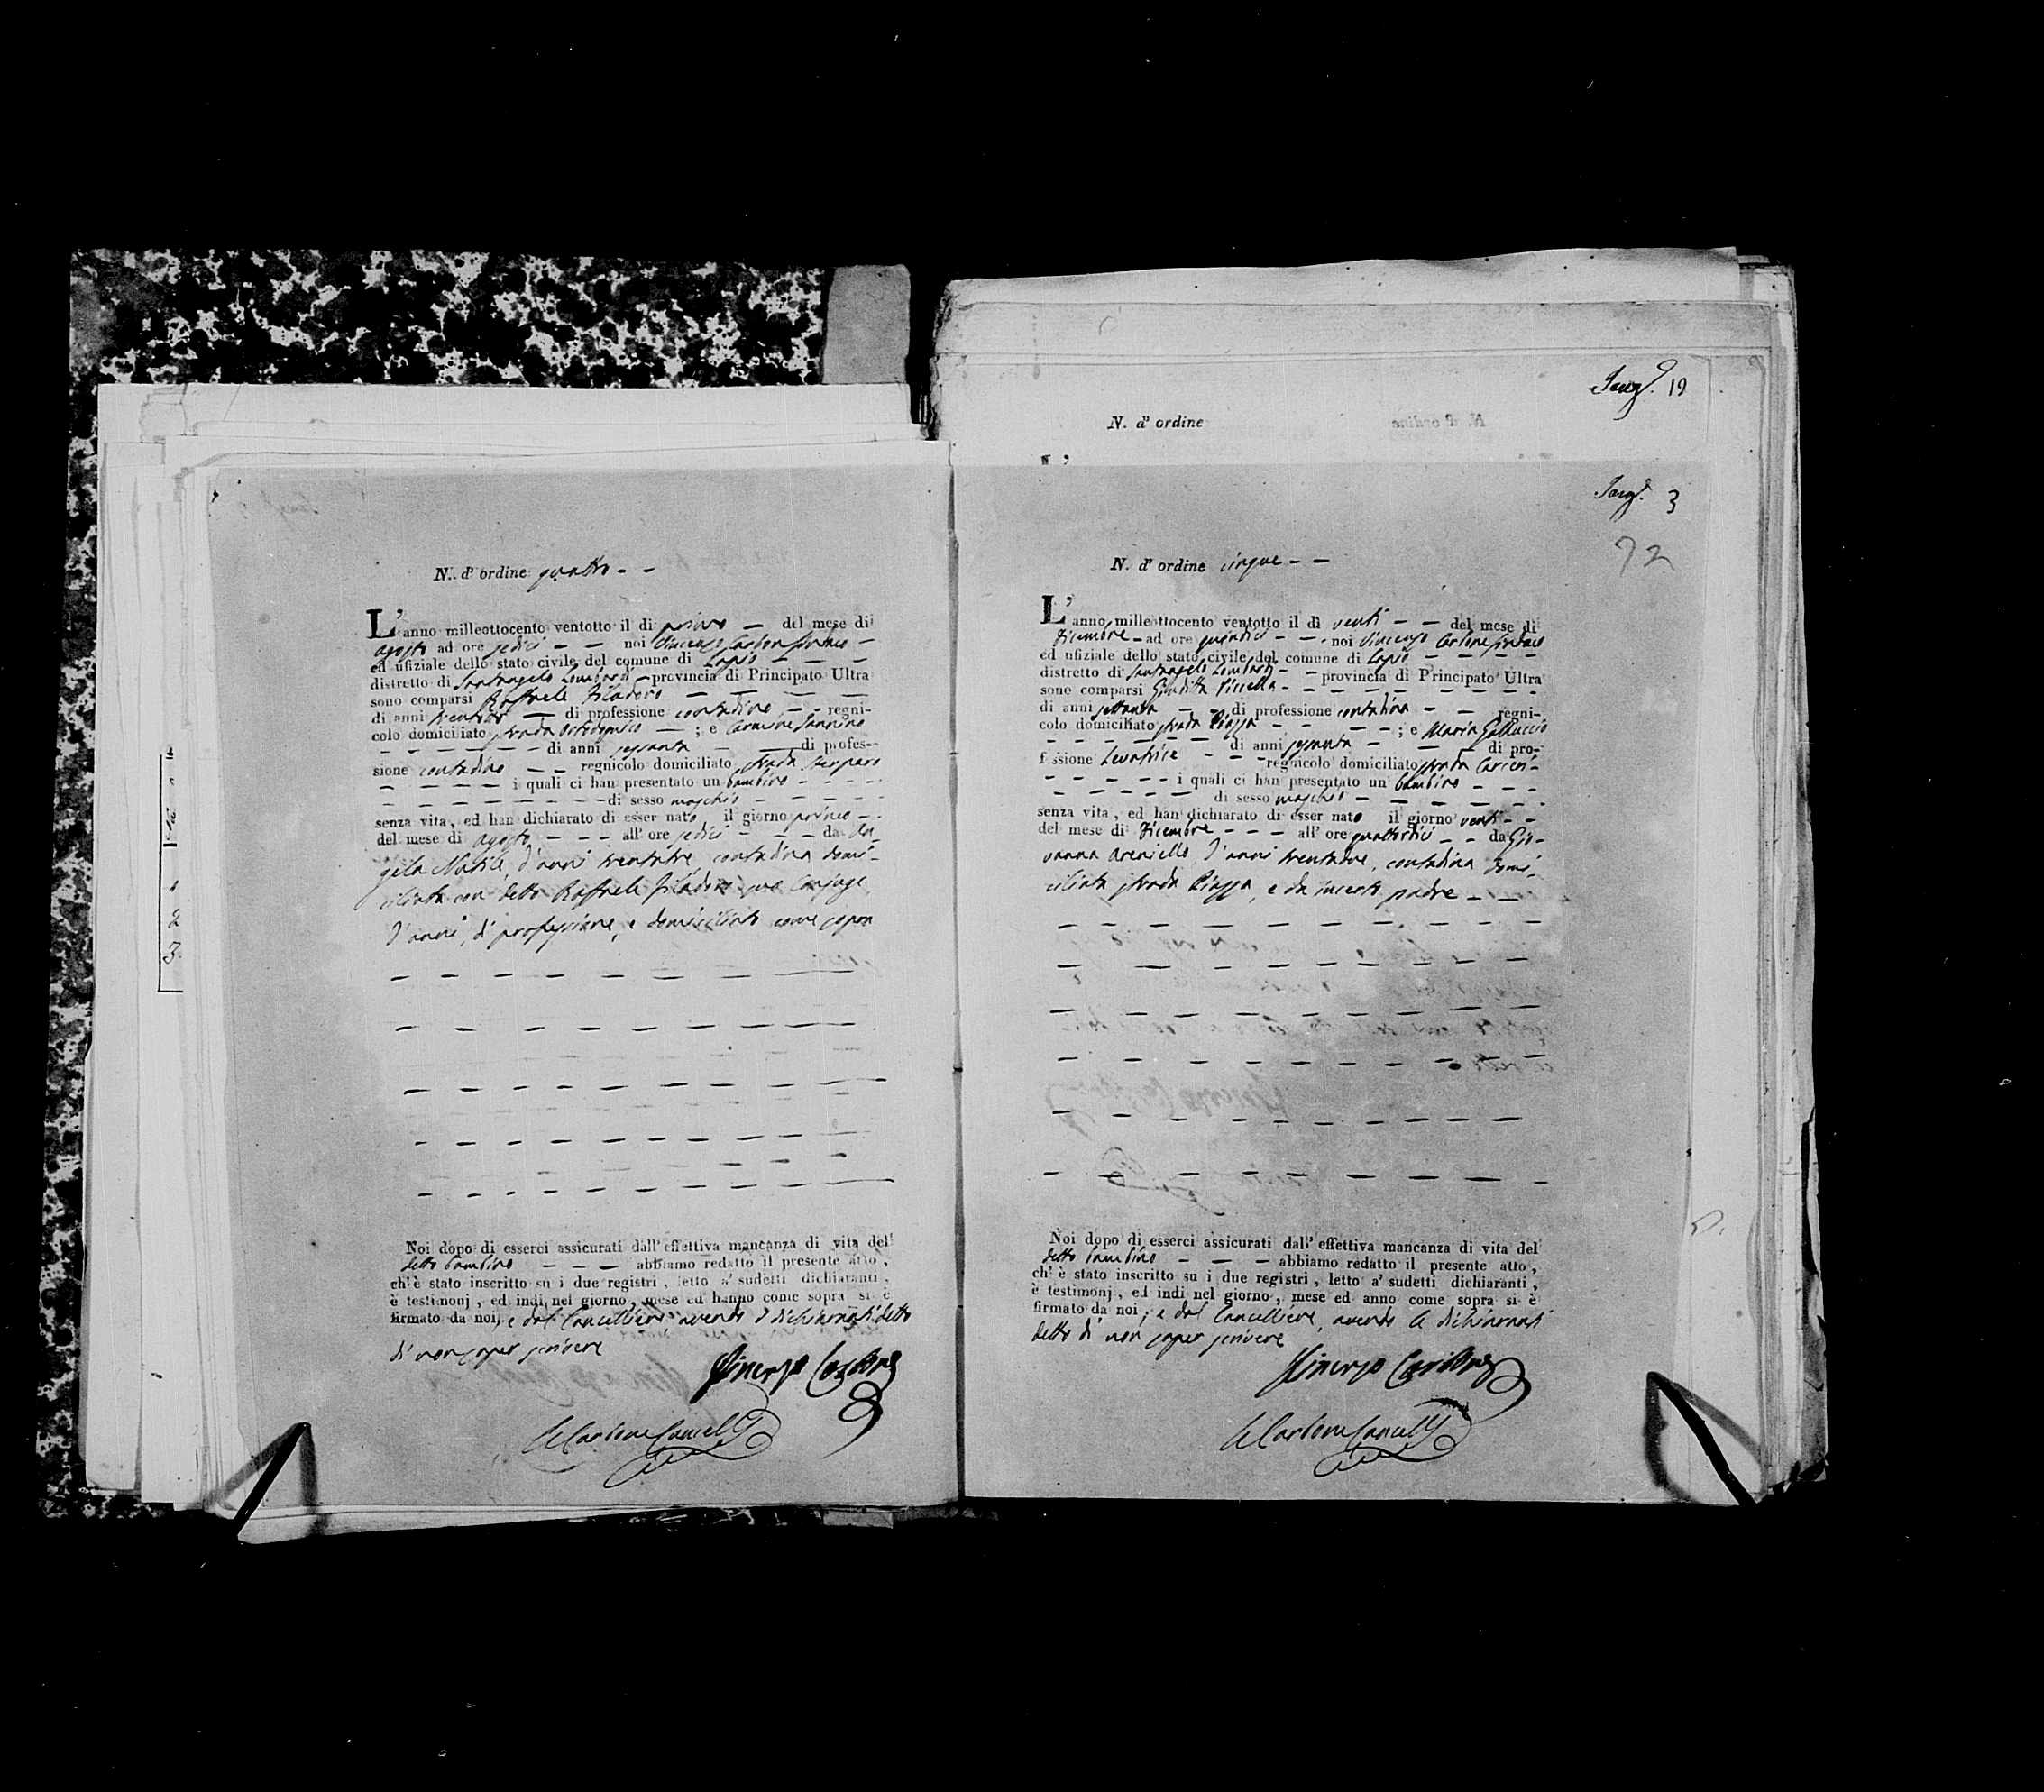 N. d' ordine quattro - -
L' anno milleottocento ventotto il di primo — del mese di
agosto ad ore sedici — — noi Vincenzo Carbone Sindaco —
ed ufiziale dello stato civile del comune di Lapio — — —
distretto di Santangelo Lombardi — provincia di Principato Ultra
sono comparsi Raffaele Filadoro — — — —
di anni — di professione contadino — — regni-
colo domiciliato strada — ; e Carmine
— — — — — — di anni sessanta — — di profes-
sione contadino — — regnicolo domiciliato strada
— — — — i quali ci han presentato un bambino — — — —
— — — — — — — di sesso maschio — — — —
senza vita, ed han dichiarato di esser nato il giorno primo — .
del mese di agosto — — — all' ore sedici — — — da An
gela d'anni trentatre, contadina domi-
ciliata con detto Raffaele Filadoro suo Conjuge,
d'anni, di professione, e domiciliato come sopra
Noi dopo di esserci assicurati dall' effettiva mancanza di vita del
detto bambino — — — abbiamo redatto il presente atto,
ch' è stato inscritto su i due registri, letto a' sudetti dichiaranti,
è testimonj, ed indi nel giorno, mese ed hanno come sopra si è
firmato da noi, e dal Cancelliere avendo i dichiaranti detto
di non saper scrivere
Vincenzo Carbone
Carbone Canc
N. d' ordine
N. d' ordine
19
3
72
N. d' ordine cinque — —
L' anno milleottocento ventotto il dì venti — — del mese di
Dicembre — ad ore quindici — — . noi Vincenzo Carbone Sindaco
ed ufiziale dello stato civile del comune di Lapio — — — —
distretto di Santangelo Lombardi — — provincia di Principato Ultra
sono comparsi Giuditta Piccella — — — — — — — —
di anni settanta — — di professione contadina — — regni-
colo domiciliato strada Piazza — — — — ; e Maria Galluccio
— — — — — — di anni sessanta — — — di pro-
fessione Levatrice — — — regnicolo domiciliato strada
— — — — — i quali ci han presentato un bambino — — —
— — — — — di sesso maschio — — — — — —
senza vita, ed han dichiarato di esser nato il giorno venti — —
del mese di Dicembre — — — all' ore quattordici — — da Gio-
vanna Areniello, d'anni trentatre, contadina domi-
ciliata strada Piazza, e da incerto padre — —
Noi dopo di esserci assicurati dall' effettiva mancanza di vita del
detto bambino — — — abbiamo redatto il presente atto,
ch' è stato inscritto su i due registri, letto a' sudetti dichiaranti,
è testimonj, ed indi nel giorno, mese ed anno come sopra si è
firmato da noi, e dal Cancelliere, avendo le dichiaranti
detto di non saper scrivere
Vincenzo Carbone
Carbone Canc